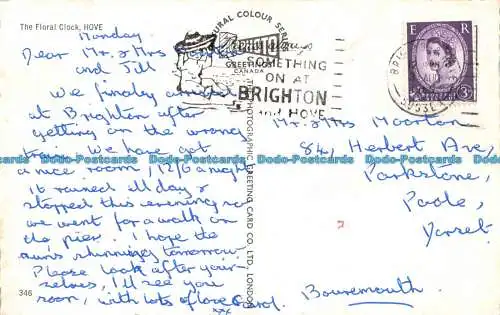 The Floral Clock, HOVE
Monday
Dear Mr. & Mrs
and Jill
We finally arrived
at Brighton after
getting on the wrong
train. We have got
a nice room, 12/6 a night
it rained all day &
stopped this evening so
we went for a walk on
the pier. I hope the
sun's shinning tomorrow.
Please look after your-
selves, I'll see you
soon, with lots of love Carol.
xxx
346
NATURAL COLOUR SERIES
CANADA
PHOTOGRAPHIC GREETING CARD CO. LTD., LONDON
always
SOMETHING
ON AT
BRIGHTON
and HOVE
E R
3D
SUSSEX
Mr. & Mrs Moorton
84, Herbert Ave,
Parkstone,
Poole,
Dorset.
Bouremouth.
Dodo-Postcards Dodo-Postcards Dodo-Postcards Dodo-Postcards